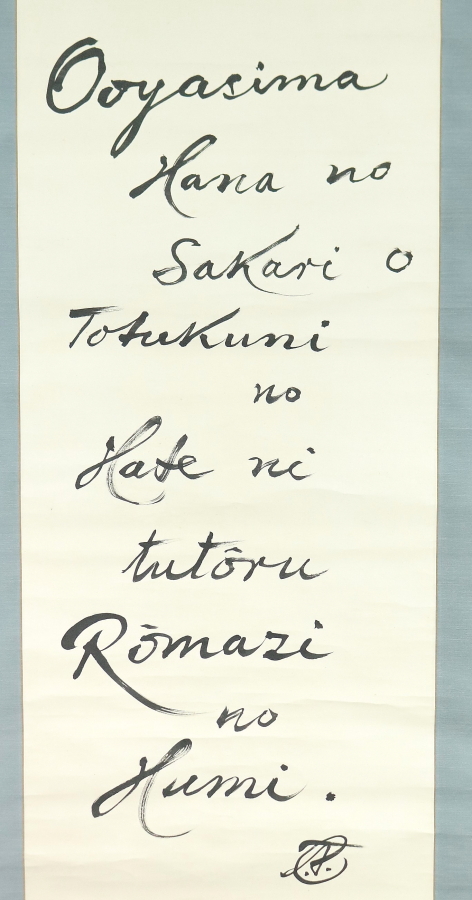 Ooyasima
Hana no
Sakari o
Totukuni
no
Hate ni
tutôru
Rōmazi
no
Humi.